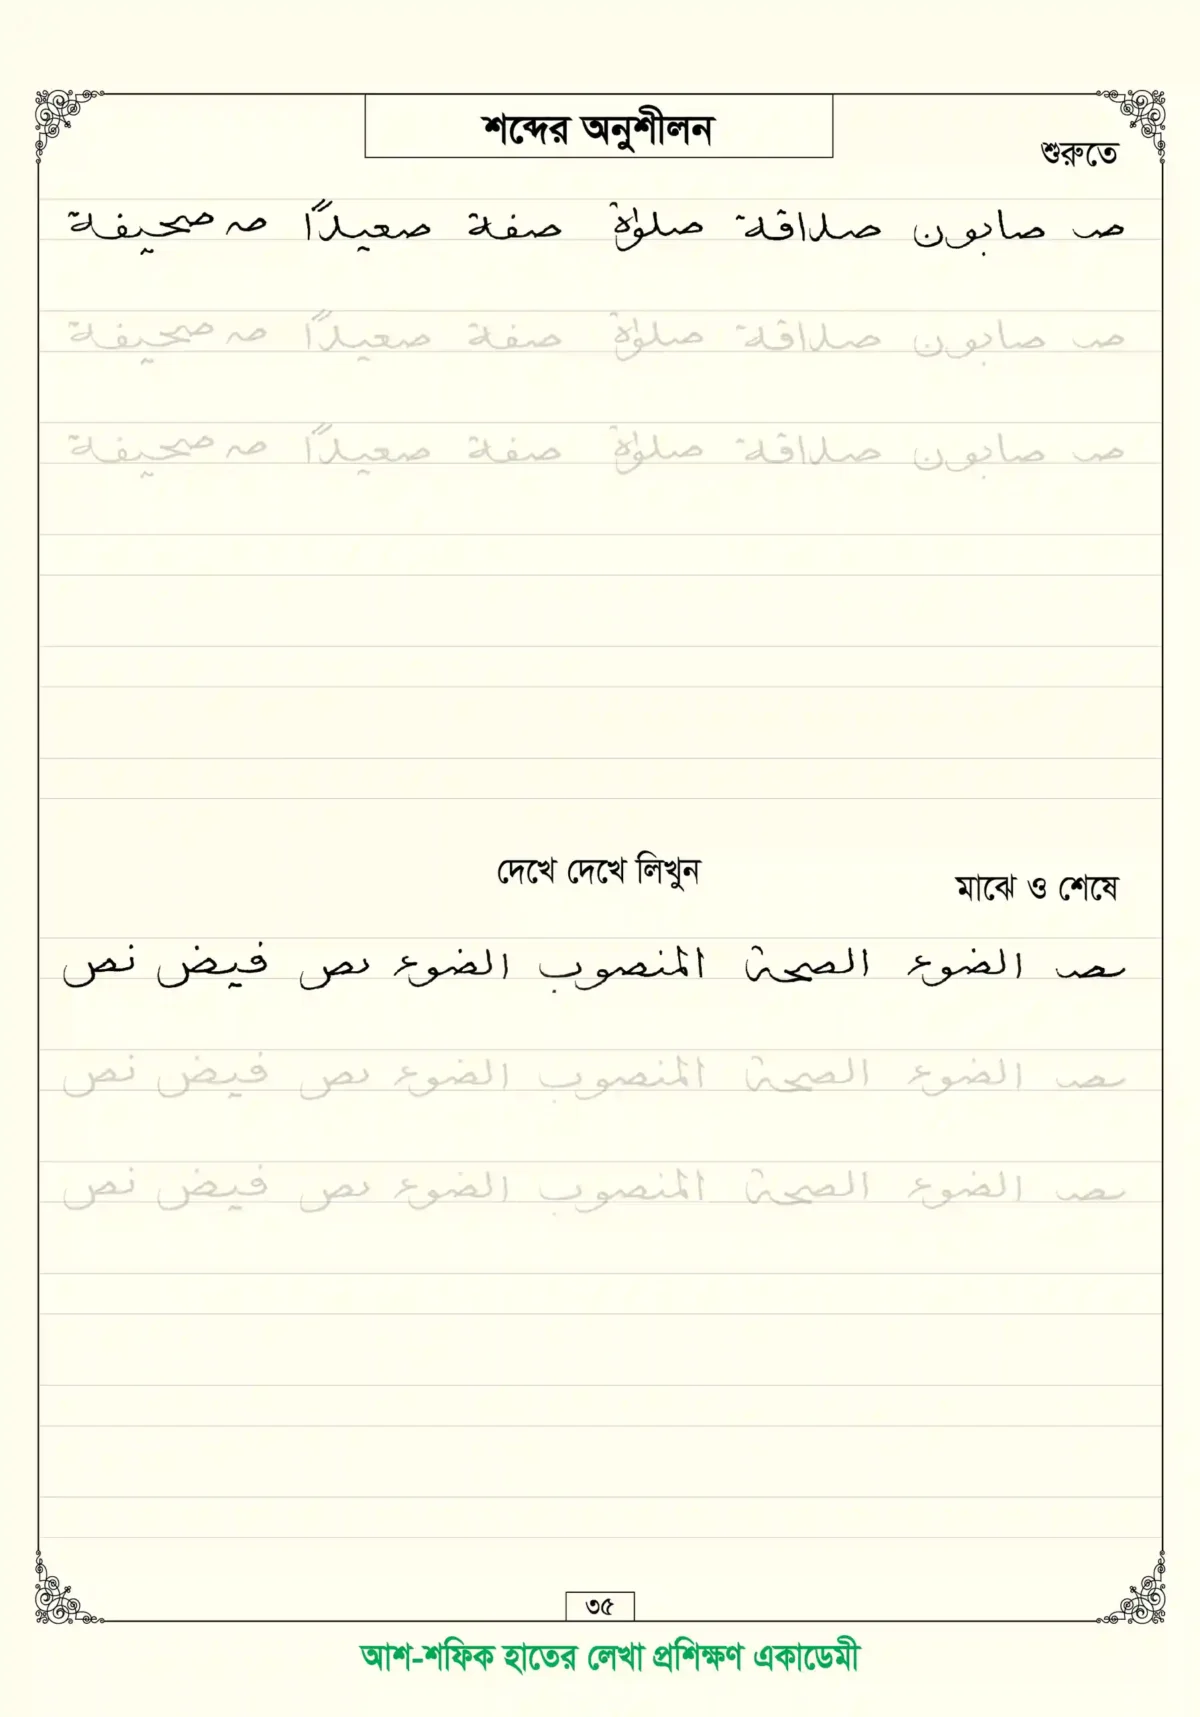 শব্দের অনুশীলন
শুরুতে
صـ صابون صداقة صلوٰة صفة صعيدًا صـ صحيفة
صـ صابون صداقة صلوٰة صفة صعيدًا صـ صحيفة
صـ صابون صداقة صلوٰة صفة صعيدًا صـ صحيفة
দেখে দেখে লিখুন
মাঝে ও শেষে
ـصـ الضوء الصحة المنصوب الضوء ـص فيض نص
ـصـ الضوء الصحة المنصوب الضوء ـص فيض نص
ـصـ الضوء الصحة المنصوب الضوء ـص فيض نص
৩৫
আশ-শফিক হাতের লেখা প্রশিক্ষণ একাডেমী